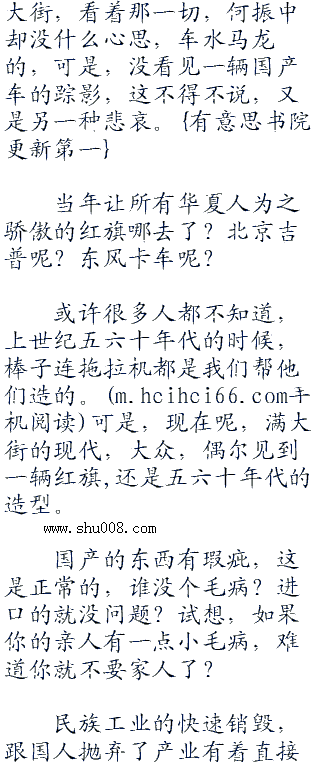 大街，看着那一切，何振中
却没什么心思，车水马龙
的，可是，没看见一辆国产
车的踪影，这不得不说，又
是另一种悲哀。{有意思书院
更新第一}
当年让所有华夏人为之
骄傲的红旗哪去了？北京吉
普呢？东风卡车呢？
或许很多人都不知道，
上世纪五六十年代的时候，
棒子连拖拉机都是我们帮他
们造的。(m.hcihci66.com手
机阅读)可是，现在呢，满大
街的现代，大众，偶尔见到
一辆红旗,还是五六十年代的
造型。
www.shu008.com
国产的东西有瑕疵，这
是正常的，谁没个毛病？进
口的就没问题？试想，如果
你的亲人有一点小毛病，难
道你就不要家人了？
民族工业的快速销毁，
跟国人抛弃了产业有着直接